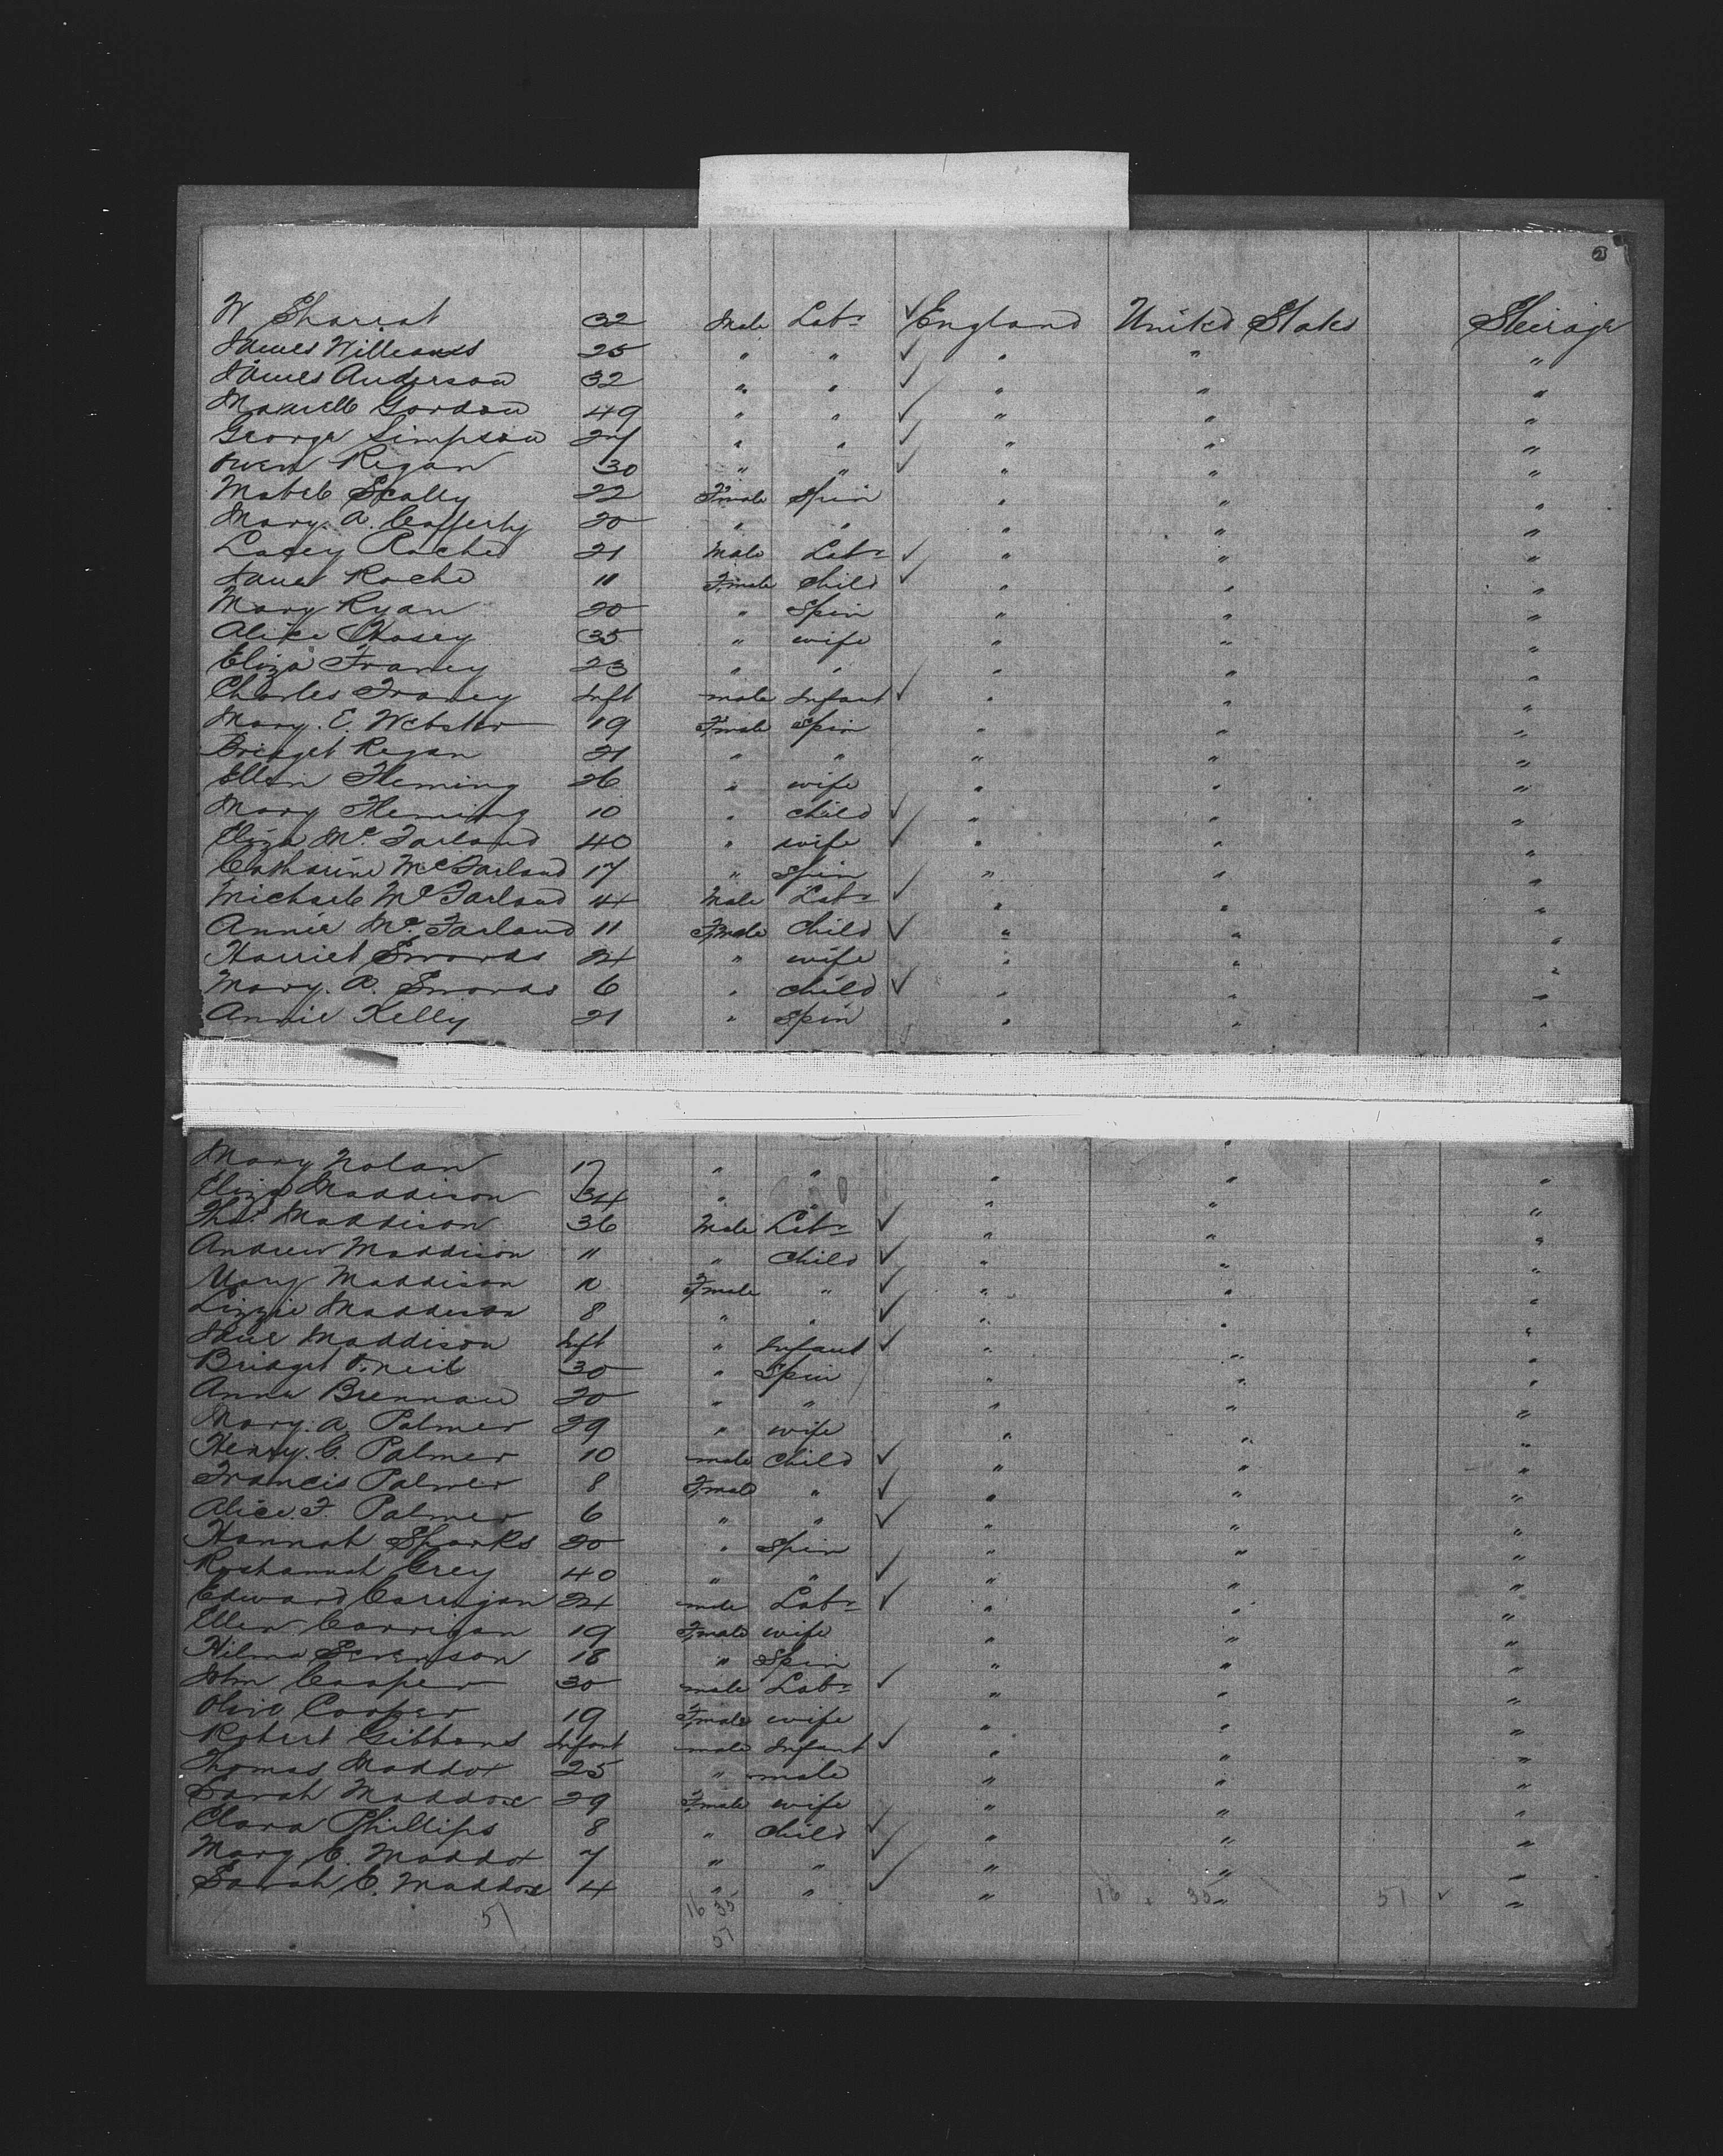 2
W Sharrat 32 Male Labr ✓ England United States Steirage
James Williams 25 " " ✓ " " "
James Anderson 32 " " ✓ " " "
Maxwell Gordon 49 " " ✓ " " "
George Simpson 27 " " ✓ " " "
Owen Regan 30 " " ✓ " " "
Mabel Scally 22 Female Spin " " "
Mary. A. Cafferty 20 " " " " "
Lacey Roche 21 Male Labr ✓ " " "
Janet Roche 11 Female Child ✓ " " "
Mary Ryan 20 " Spin " " "
Alice Hosey 35 " wife " " "
Eliza Franey 23 " " " " "
Charles Franey Inft male Infant ✓ " " "
Mary. E. Webster 19 Female Spin " " "
Bridget Regan 21 " " " " "
Ellen Fleming 26 " wife " " "
Mary Fleming 10 " child ✓ " " "
Eliza Mc Farland 40 " wife ✓ " " "
Catharine McFarland 17 " Spin " " "
Michael McFarland 14 Male Labr ✓ " " "
Annie Mc Farland 11 Female Child ✓ " " "
Harriet Swords 24 " wife " " "
Mary. A. Swords 6 " child ✓ " " "
Annie Kelly 21 " Spin " " "
Mary Nolan 17 " " " " "
Eliza Maddison 34 " " " "
Thos Maddison 36 Male Labr ✓ " " "
Andrew Maddison 11 " Child ✓ " " "
Mary Maddison 10 Female " ✓ " " "
Lizzie Maddison 8 " " ✓ " " "
Jane Maddison Inft " Infant ✓ " " "
Bridget O'Neil 30 " Spin " " "
Anna Brennan 20 " " " " "
Mary. A Palmer 29 " wife " " "
Henry. G. Palmer 10 male Child ✓ " " "
Francis Palmer 8 Female " ✓ " " "
Alice. F. Palmer 6 " " ✓ " " "
Hannah Sparks 20 " Spin " " "
Roshannah Grey 40 " " ✓ " " "
Edward Carrigan 24 male Labr ✓ " " "
Ellen Carrigan 19 Female wife " " "
Hilma Sevenson 18 " Spin " " "
John Cooper 30 male Labr ✓ " " "
Olive Cooper 19 Female wife " " "
Robert Gibbons Infant male Infant ✓ " " "
Thomas Maddox 25 " male " " "
Sarah Maddox 29 Female wife " " "
Clara Phillips 8 " Child ✓ " " "
Mary E. Maddox 7 " " ✓ " " "
Sarah E. Maddox 4 " " ✓ " " "
51 16 35 16 35 51 ✓
51